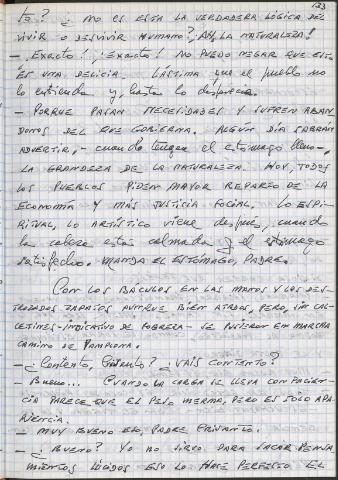 133
to? ¿ NO ES ESTA LA VERDADERA LÓGICA DEL
VIVIR O DESVIVIR HUMANO? ¡AY, LA NATURALEZA!
- ¡EXACTO! ¡EXACTO! NO PUEDO NEGAR QUE ESTO
ES UNA DELICIA. LÁSTIMA que el pueblo no
lo entienda y, hasta lo desprecia.
- PORQUE PASAN NECESIDADES Y SUFREN ABAN
DONOS DEL QUE GOBIERNA. ALGÚN DÍA SABRAN
ADVERTIR, - cuando tengan el estomago lleno -,
LA GRANDEZA DE LA NATURALEZA. HOY, TODOS
LOS PUEBLOS PIDEN MAYOR REPARTO DE LA
ECONOMÍA Y MÁS JUSTICIA SOCIAL. LO ESPI-
RITUAL, LO ARTÍSTICO viene después, cuando
la cabeza estás calmada y el estómago
satisfecho. MANDA EL ESTÓMAGO, PADRE.
CON LOS BÁCULOS EN LAS MANOS Y LOS DES_
TROZADOS ZAPATOS AUNQUE BIEN ATADOS, PERO, SIN CAL_
CETINES - INDICATIVO DE POBREZA - SE PUSIERON EN MARCHA
CAMINO DE PAMPLONA.
- ¿Contento, ? ¿VAIS CONTENTO?
- BUENO... CUANDO LA CARGA SE LLEVA CON PACIEN_
CIA PARECE QUE EL PESO MERMA, PERO ES SÓLO APA_
RIENCIA.
- MUY BUENO ESO, PADRE
- ¿BUENO? YO NO SIRVO PARA SACAR PENSA_
MIENTOS LÚCIDOS ESO LO HACE PERFECTO EL